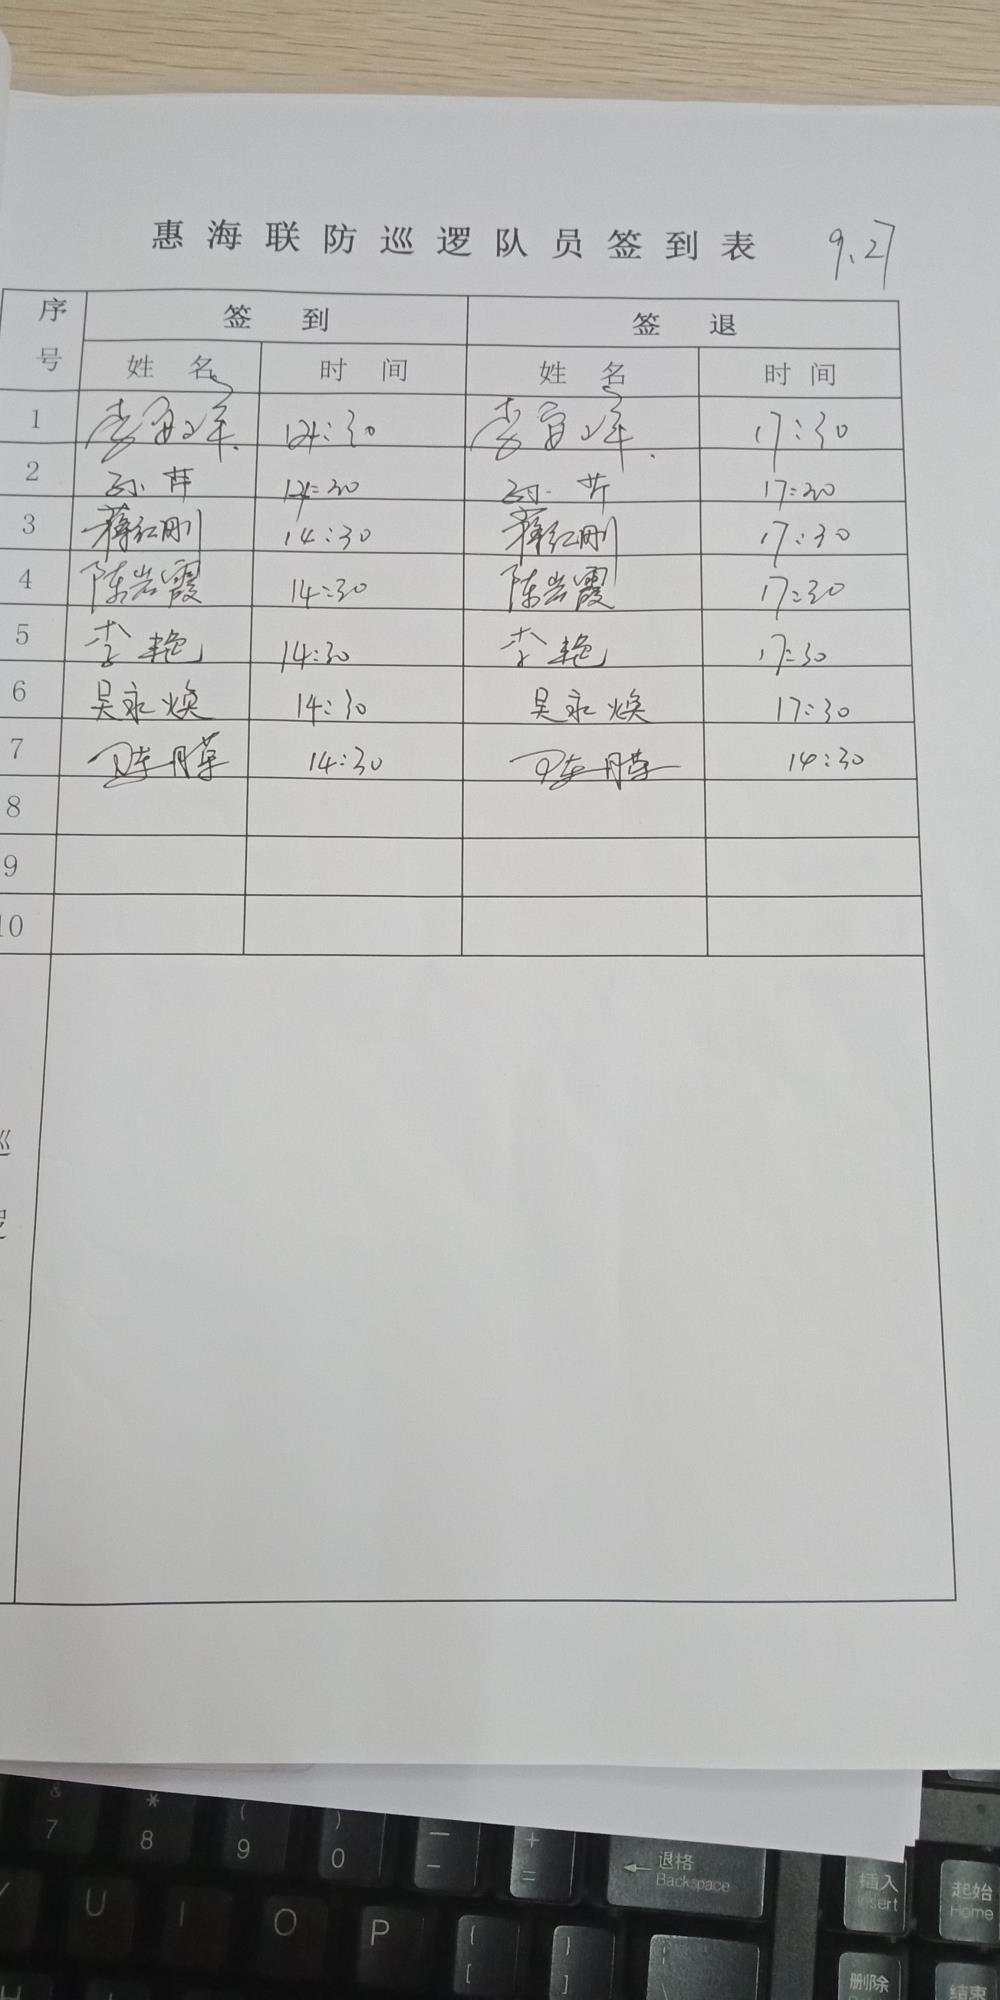 惠海联防巡逻队员签到表 9.27
序号 签到 签退
姓名 时间 姓名 时间
1 14:30 17:30
2 孙芹 14:30 17:30
3 蒋红刚 14:30 蒋红刚 17:30
4 陈岩霞 14:30 陈岩霞 17:30
5 李艳 14:30 李艳 17:30
6 吴永焕 14:30 吴永焕 17:30
7 14:30 14:30
8
9
10
巡
逻
& * ( ) — +
7 8 9 0 - =
退格 Backspace
插入 Insert
起始 Home
U I O P { [ } ]
删除
结束